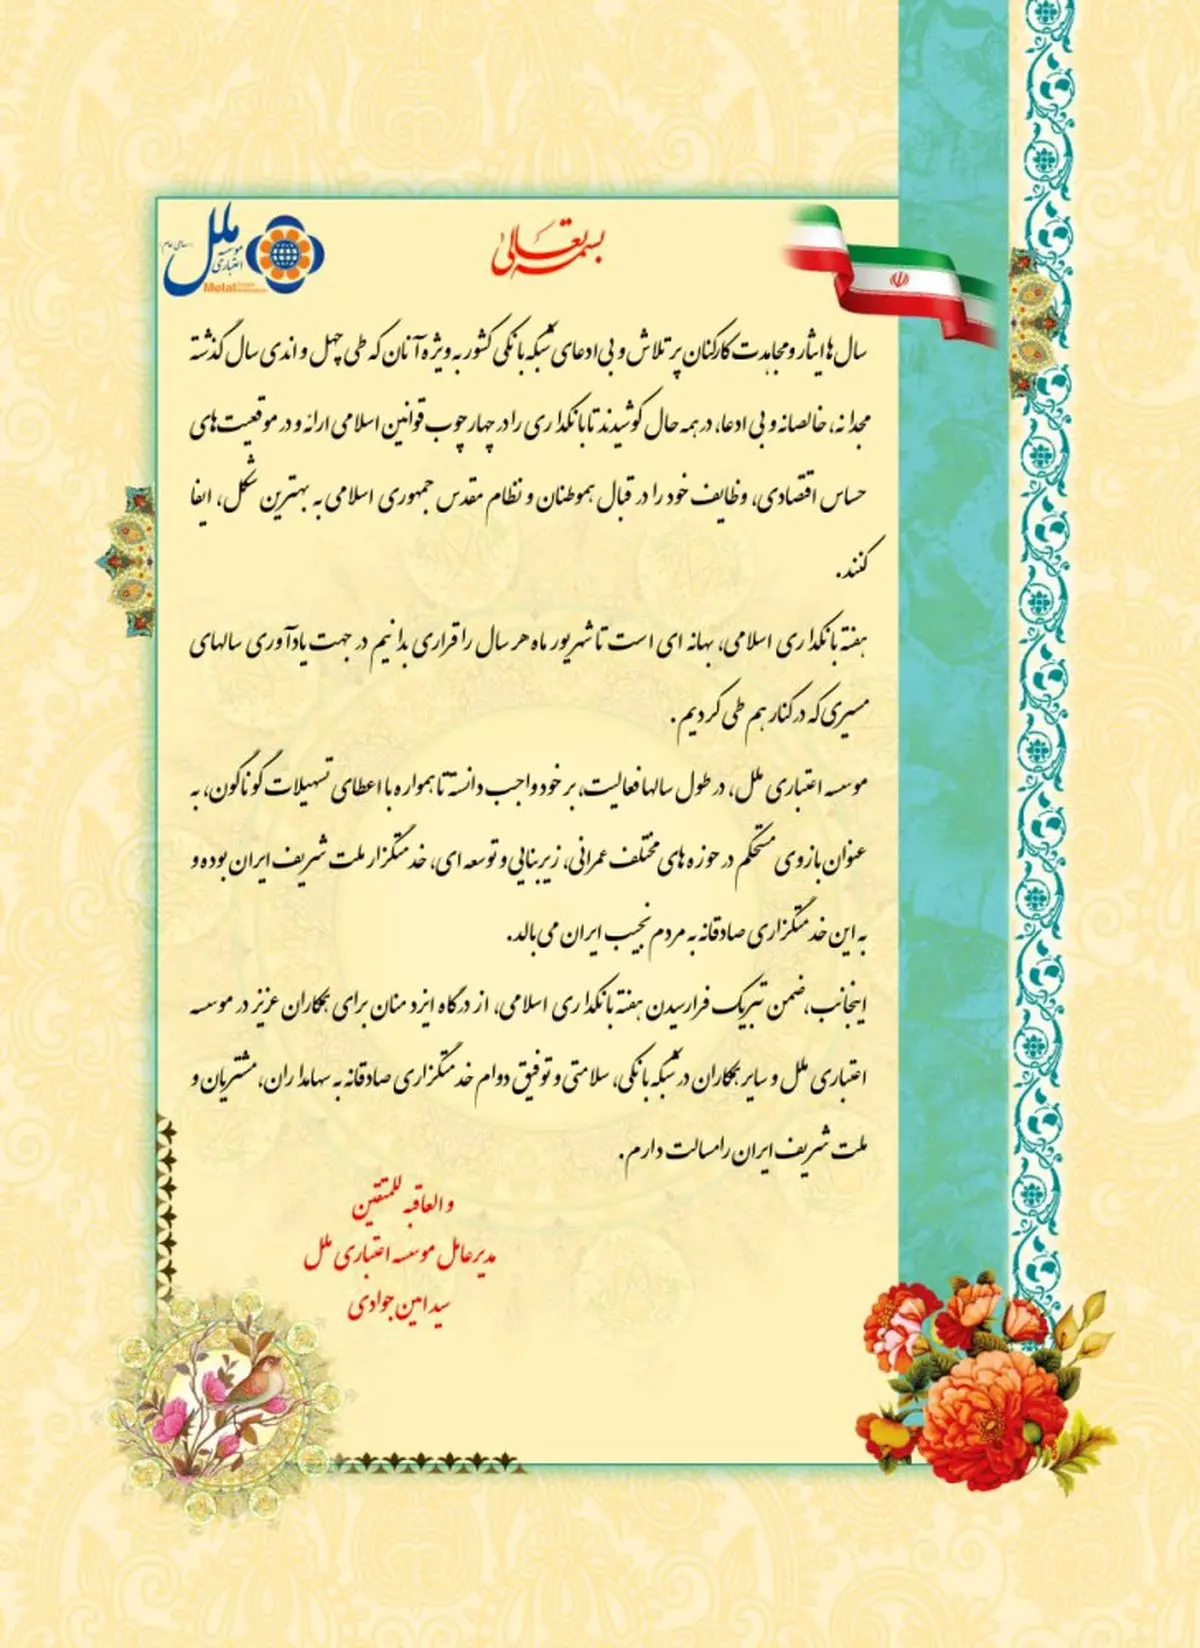 بسمه تعالی
ملل
موسسه
اعتباری
(سهامی عام)
Melal
سال ها ایثار و مجاهدت کارکنان پر تلاش و بی ادعای شبکه بانکی کشور به ویژه آنان که طی چهل و اندی سال گذشته
مجدانه، خالصانه و بی ادعا، در همه حال کوشیدند تا بانکداری را در چهارچوب قوانین اسلامی ارائه و در موقعیت های
حساس اقتصادی، وظایف خود را در قبال هموطنان و نظام مقدس جمهوری اسلامی به بهترین شکل، ایفا
کنند.
هفته بانکداری اسلامی، بهانه ای است تا شهریور ماه هر سال را قراری بدانیم در جهت یادآوری سالهای
مسیری که در کنار هم طی کردیم.
موسسه اعتباری ملل، در طول سالها فعالیت، بر خود واجب دانسته تا همواره با اعطای تسهیلات گوناگون، به
عنوان بازوی مستحکم در حوزه های مختلف عمرانی، زیربنایی و توسعه ای، خدمتگزار ملت شریف ایران بوده و
به این خدمتگزاری صادقانه به مردم نجیب ایران می بالد.
اینجانب، ضمن تبریک فرارسیدن هفته بانکداری اسلامی، از درگاه ایزد منان برای همکاران عزیز در موسسه
اعتباری ملل و سایر همکاران در شبکه بانکی، سلامتی و توفیق دوام خدمتگزاری صادقانه به سهامداران، مشتریان و
ملت شریف ایران را مسالت دارم.
و العاقبه للمتقین
مدیرعامل موسسه اعتباری ملل
سید امین جوادی